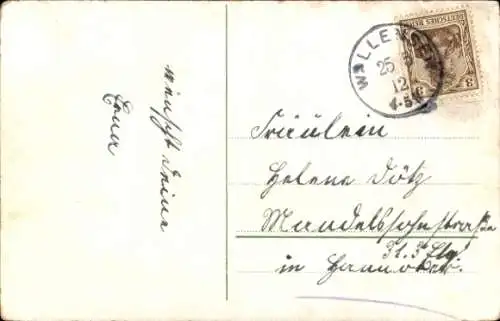 wünscht Deine
Erna
WALLENSEN
25
12
4-5
DEUTSCHES REICH
3 3
Fräulein
Helene Dötz
Mandelssohnstraße
31. 3 Etg.
in Hannover.